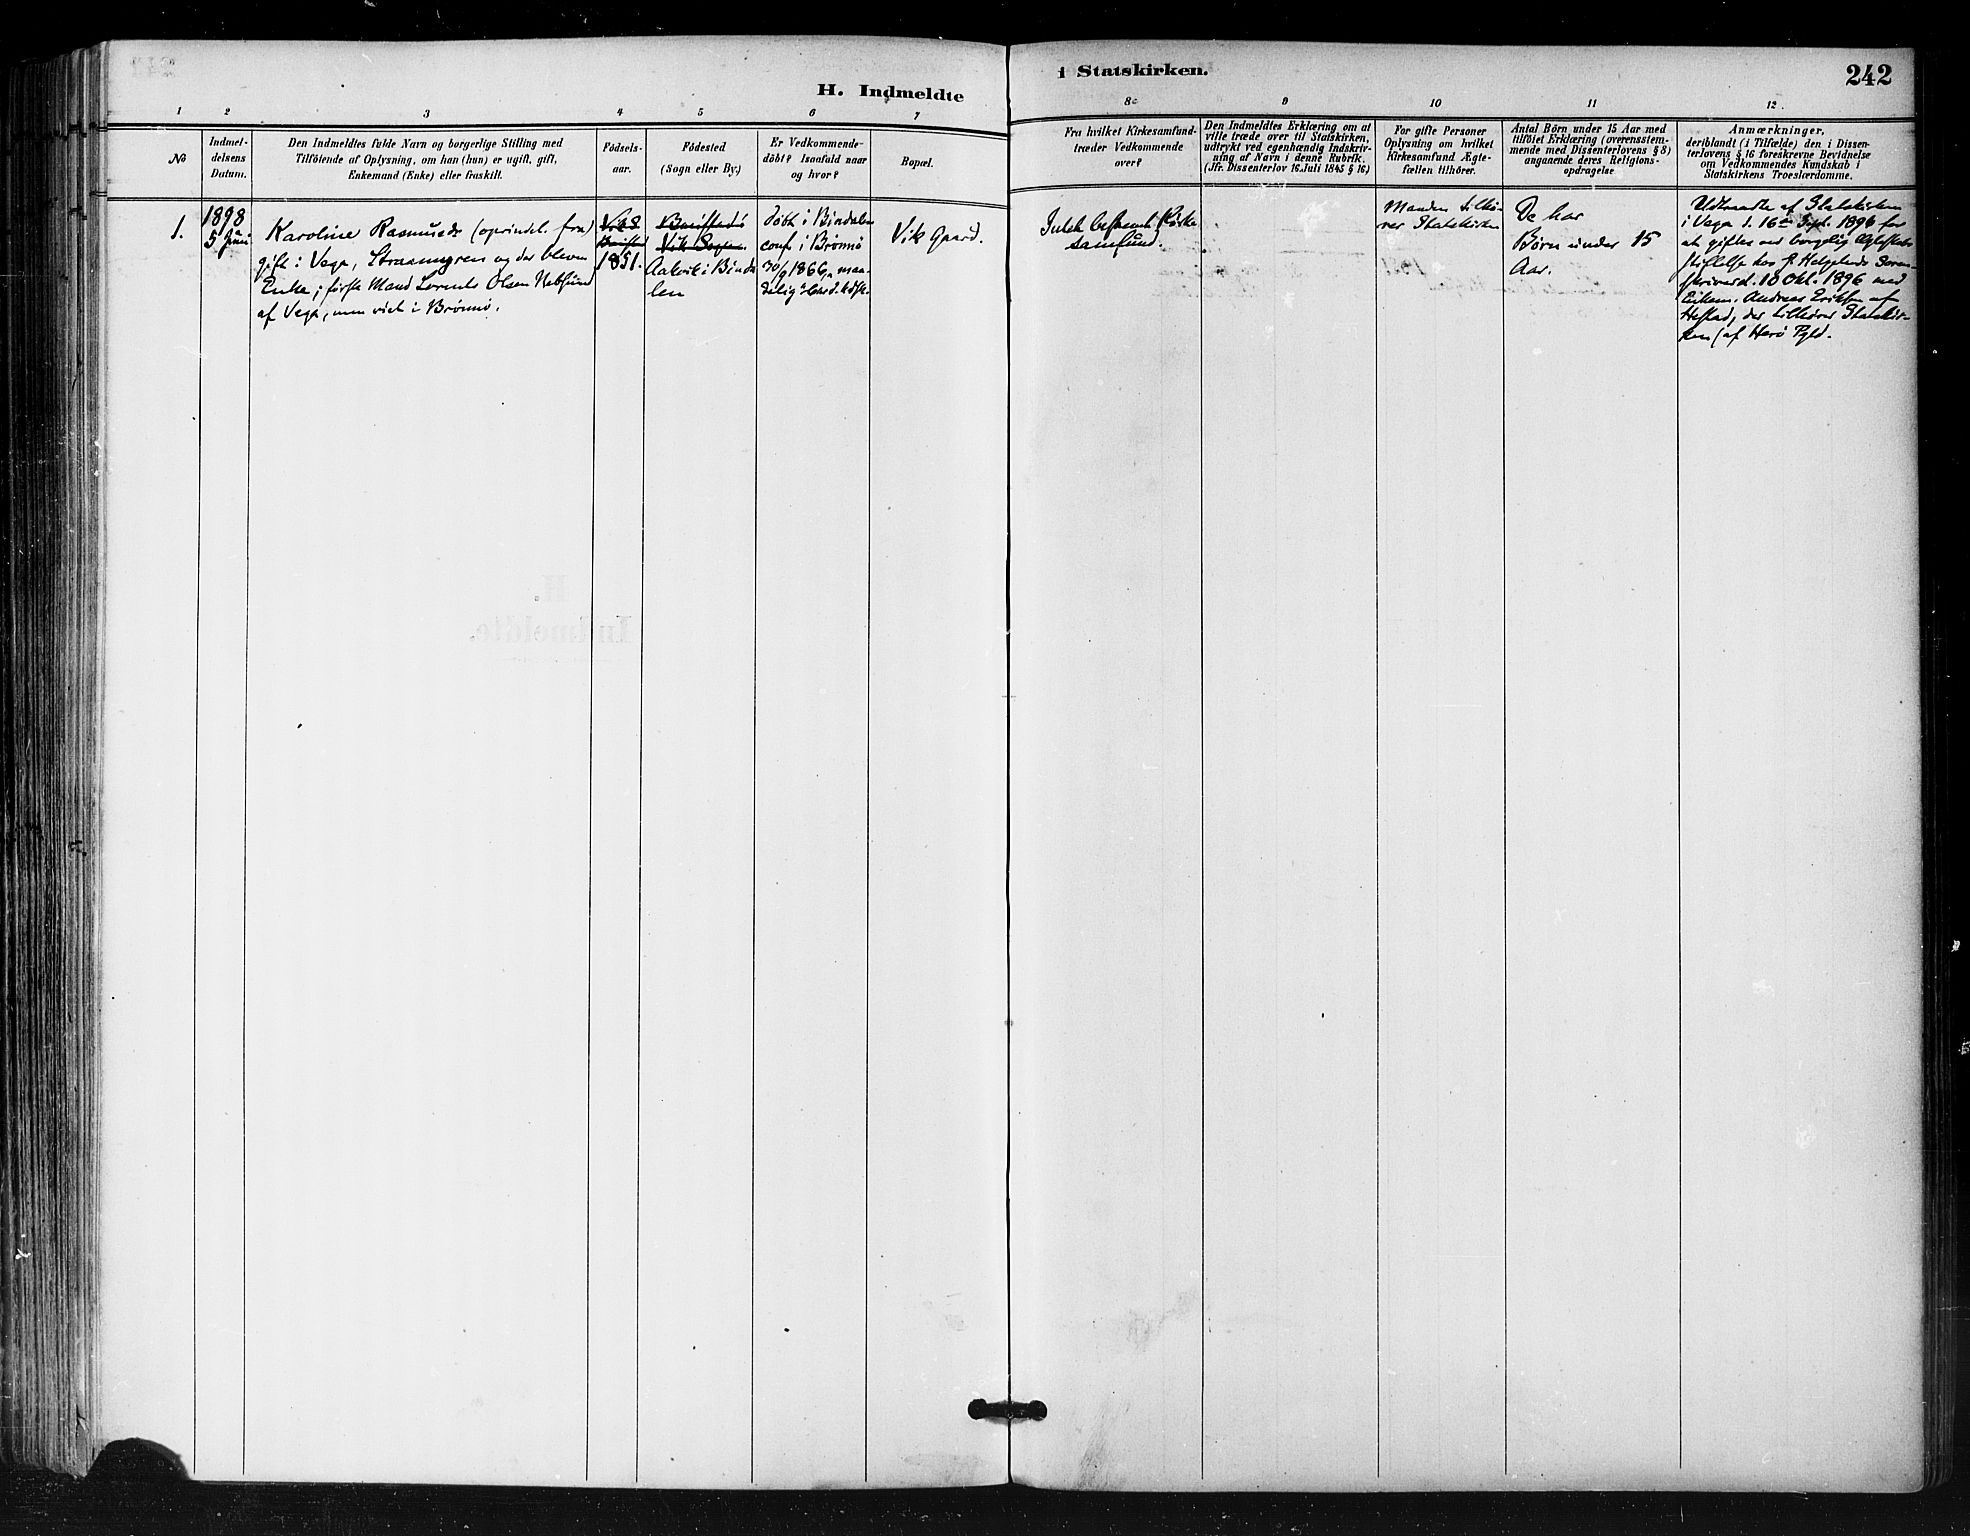 H. Indmeldte
i Statskirken.
242
1 2 3 4 5 6 7
8 9 10 11 12
No
Indmel-
delsens
Datum.
Den Indmeldtes fulde Navn og borgerlige Stilling med
Tilföiende af Oplysning, om han (hun) er ugift, gift,
Enkemand (Enke) eller fraskilt.
Födsels-
aar.
Födested
(Sogn eller By.)
Er Vedkommende
döbt? Isaafald naar
og hvor?
Bopæl.
Fra hvilket Kirkesamfund
træder Vedkommende
over?
Den Indmeldtes Erklæring om at
ville træde over til Statskirken,
udtrykt ved egenhændig Indskriv-
ning af Navn i denne Rubrik.
(Jfr. Dissenterlov 16. Juli 1845 § 16)
For gifte Personer
Oplysning om hvilket
Kirkesamfund Ægte-
fællen tilhörer.
Antal Börn under 15 Aar med
tilföiet Erklæring (overensstem-
mende med Dissenterlovens § 8)
angaaende deres Religions-
opdragelse
Anmærkninger,
deriblandt (i Tilfælde) den i Dissen-
terlovens § 16 foreskrevne Bevidnelse
om Vedkommendes Kundskab i
Statskirkens Troeslærdomme.
1.
1898
5 Juni
Karoline Rasmusd. (oprindel. fra)
gift i Vega, og der bleven
Enke; første Mand Lorents Olsen
af Vega, men viet i Brønnø.
1851.
Vik Sogn
Aakvik i Binda
len
døbt i Bindalen
conf. i Brønnø
30/9 1866
Vik Gaard.
Intet bestemt Kirke
samfund.
Manden tilhø-
rer Statskirken
De har
Børn under 15
Aar.
Udtraadte af Statskirken
i Vega d. 16de Sept. 1896 for
at giftes ved borgelig Ægteskabs
stiftelse hos S. Helgelands Soren-
skriver d. 10 Okt. 1896 med
Enkem. Andreas Eriksen af
Hestad, der tilhører Statskir-
ken (af Herø Pgld.
H.
Indmeldte.